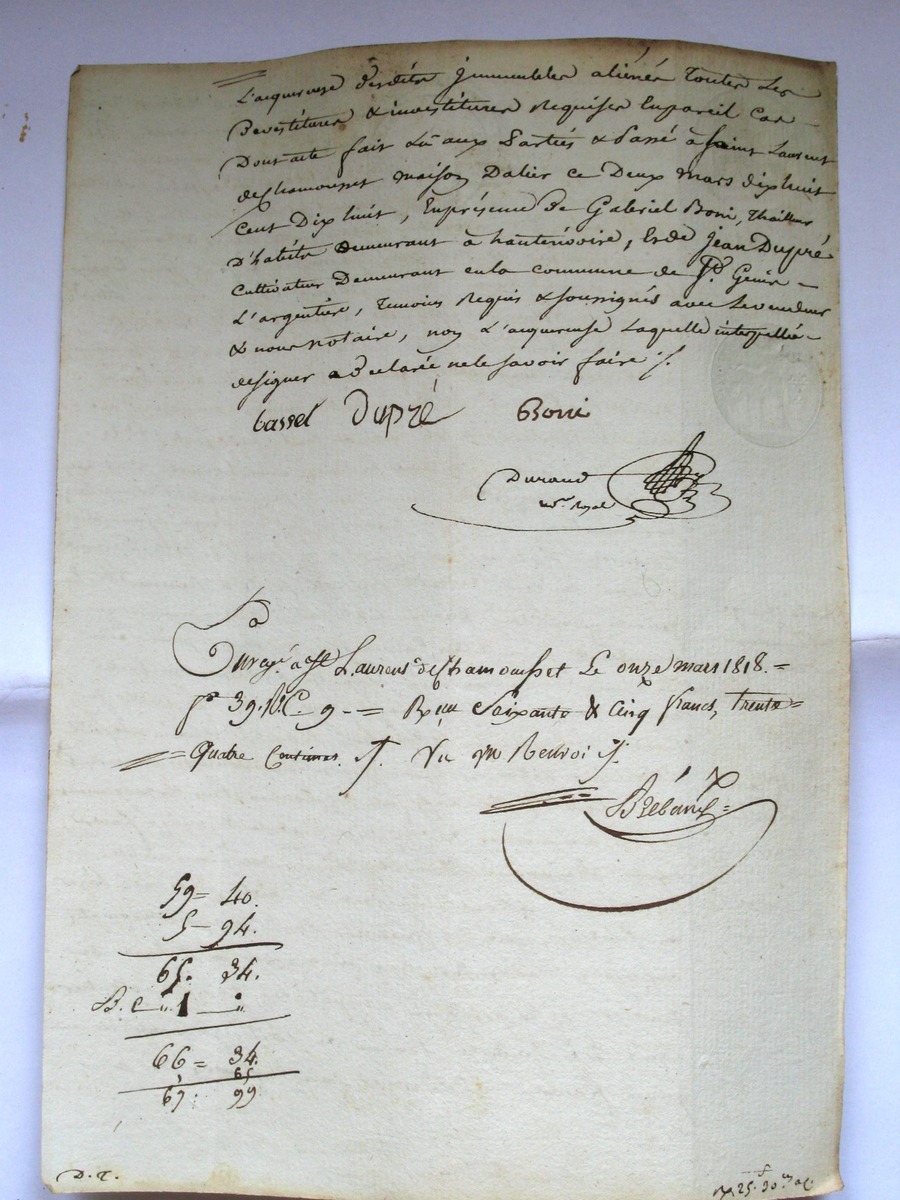 L'acquereuse desdits immeubles aliénés toutes les
Devestitures & investitures Requises Enpareil cas
Dont acte fait Lû aux Parties & Passé à Saint Laurent
deChamousset maison Dalier ce Deux mars dixhuit
Cent Dix huit, Enprésence De Gabriel Boni, Thailleur
D'habits Demeurant à hauterivoire, & de Jean Dupré
Cultivateur Demeurant en la commune de St. Genis
L'argentiere, temoins Requis & soussignés avec Levendeur
& nous notaire, non L'acquereuse Laquelle interpellée
designer a Déclaré nele savoir faire /.
Dupré Boni
Durand
nre. Royal
Enregé. à St Laurent deChamousset Le onze mars 1818.
fo 39. Ro. C. 9 Reçu Soixante & Cinq francs, trente
Quatre Centimes. /. Vu un Renvoi /.
59 = 40.
5 - 94.
65. 34.
1
66 = 34.
65
67. 99
D. T.